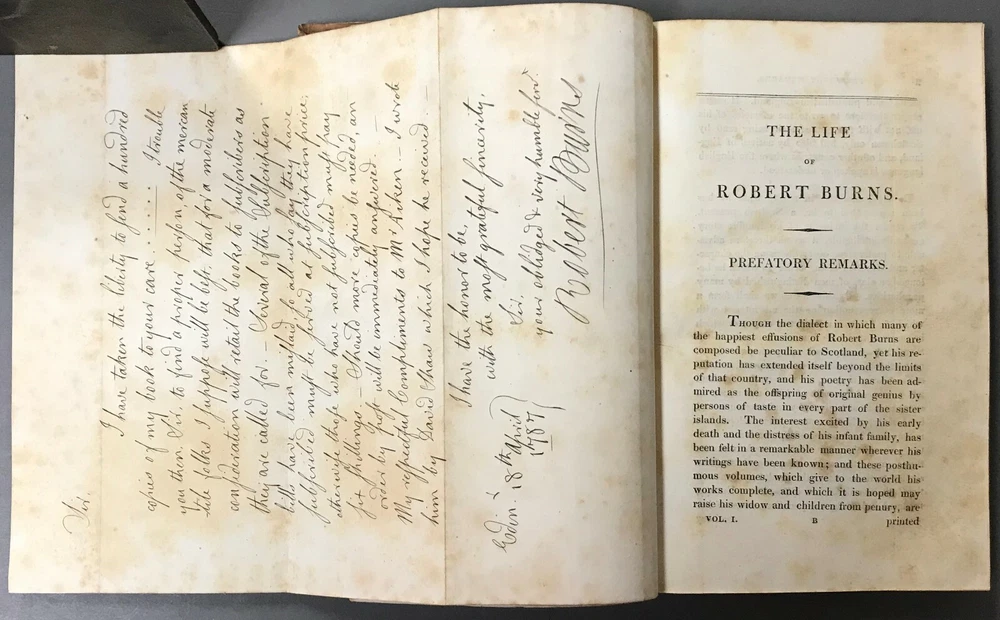 Sir.
I have taken the liberty to send a hundred
copies of my book to your care . . . . . I trouble
you then Sir, to find a proper person, of the mercan
tile folks I suppose will be best, that for a moderate
compensation will retail the books to subscribers as
they are called for. — Several of the Subscription
bills have been mislaid, so all who say they have
subscribed must be served at subscription price;
otherwise those who have not subscribed must pay
six shillings. — Should more copies be needed, an
order by post will be immediately answered. —
My respectful Compliments to Mr Aiken. — I wrote
him by David Shaw which I hope he received —
I have the honor to be,
with the most grateful sincerity,
Sir,
your obliged & very humble servt
Edinr 18th April
1787
Robert Burns
THE LIFE
OF
ROBERT BURNS.
PREFATORY REMARKS.
THOUGH the dialect in which many of
the happiest effusions of Robert Burns are
composed be peculiar to Scotland, yet his re-
putation has extended itself beyond the limits
of that country, and his poetry has been ad-
mired as the offspring of original genius by
persons of taste in every part of the sister
islands. The interest excited by his early
death and the distress of his infant family, has
been felt in a remarkable manner wherever his
writings have been known; and these posthu-
mous volumes, which give to the world his
works complete, and which it is hoped may
raise his widow and children from penury, are
VOL. I. B printed